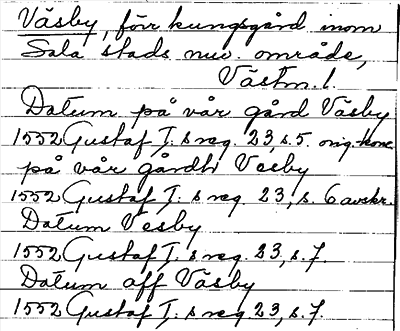 Väsby, förr kungsgård inom
Sala stads nuv. område,
Västm. l.
Datum på vår gård Väsby
1552 Gustaf I:s reg. 23, s. 5 orig. konc
på vår gårdh Vesby
1552 Gustaf I:s reg. 23, s. 6 avskr.
Datum Vesby
1552 Gustaf I:s reg. 23, s. 7.
Datum aff Väsby
1552 Gustaf I:s reg. 23, s. 7.